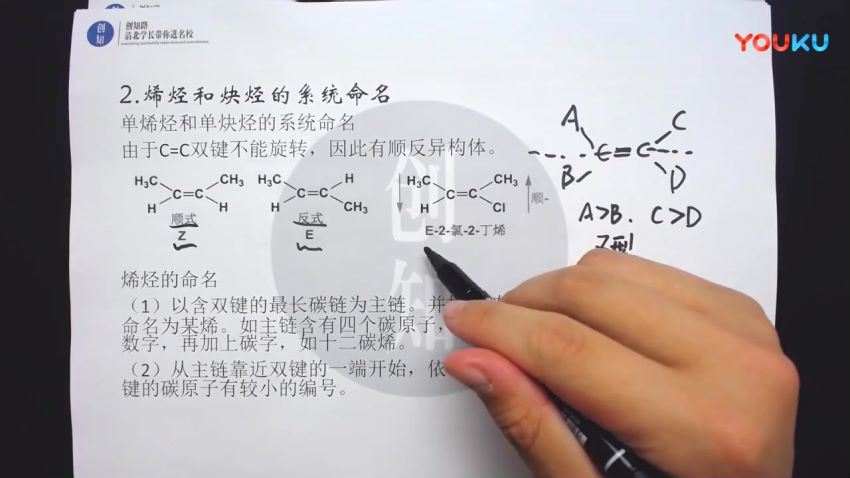 创知
创知路
清北学长带你进名校
Everything worthwhile takes date and commitment.
YOUKU
2.烯烃和炔烃的系统命名
单烯烃和单炔烃的系统命名
由于C=C双键不能旋转，因此有顺反异构体。
A C
C=C
B D
H₃C CH₃ H₃C H H₃C CH₃
C=C C=C C=C
H H H CH₃ H Cl
顺-
顺式 反式
Z E
E-2-氯-2-丁烯
A>B. C>D
Z型
烯烃的命名
（1）以含双键的最长碳链为主链。并
命名为某烯。如主链含有四个碳原子，
数字，再加上碳字，如十二碳烯。
（2）从主链靠近双键的一端开始，依
键的碳原子有较小的编号。
创知